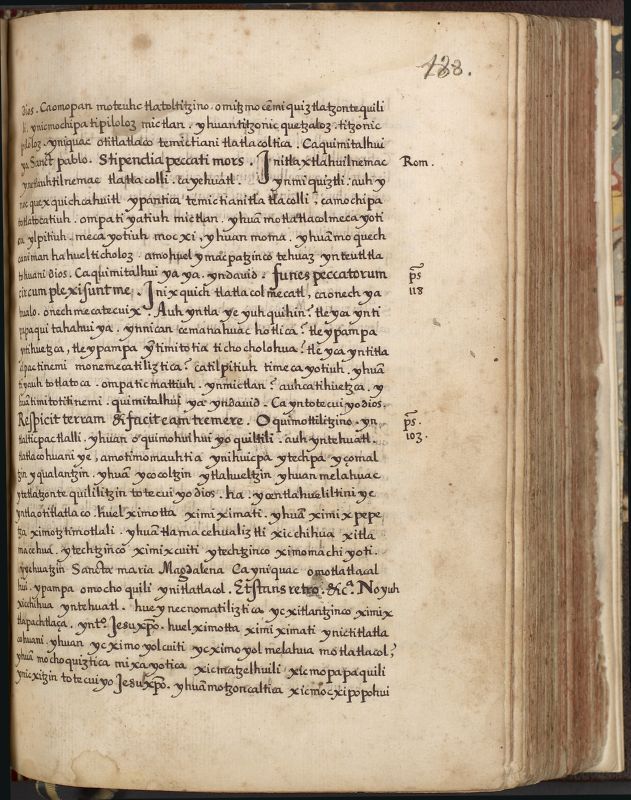 188.
dios. Caomopan moteuhc tlatoltitzino. omitzmocẽmiquiztlatzontequili
li. ynicmochipa tipiloloz mictlan. yhuan titzonicquetzaloz. titzonic
pololoz. yniquac otitlatlaco temictiani tlatlacoltica. Caquimitalhui
ya Sanct pablo. Stipendia peccati mors. Jnitlaxtlahuilnemac
ynetlauhtilnemac tlatlacolli. ca yehuatl. ynmiquiztli. auh y
nac quexquich cahuitl ypantica temictiani tlatlacolli. camochipa
totlatocatiuh. ompa ti yatiuh mictlan. yhuã motlatlacolmecayoti
ca ylpitiuh. mecayotiuh mocxi, yhuan moma. yhuã moquech
caniman hahuel ticholoz. amohuel ymacpatzinco tehuaz ynteutl tla
tohuani dios. Caquimitalhui ya ya. yn dauid. funes peccatorum
circumplexi sunt me. Jnixquich tlatlacolmecatl, caonech ya
hualo. onechmecatecuix. Auh yntla ye yuhquihin? tleyca ynti
papaquitahahui ya. ynnican cemanahuac hotlica? tleypampa
yntihuetzca, tleypampa ỹtimitotia tichocholohua? tleyca yntitla
cpactinemi monemecatiliztica? catilpitiuh timecayotiuh. yhuã
tiyauh totlatoca. ompaticmattiuh. ynmictlan? auh catihuetzca. y
huã timitotitinemi. quimitalhui ya yn dauid. Cayn totecuiyo dios.
Respicit terram & facit eam tremere. O quimottilitzino. yn
tlalticpactlalli. yhuan oquimohuihuiyoquiltili. auh yn tehuatl.
titlatlacohuani ye, amotimomauhtia ynihuicpa ytechpa yçomal
tzin yqualantzin. yhuã ycocoltzin ytlahueltzin yhuan melahuac
ytetlatzontequililitzin totecuiyo dios. ha. ycentlahueliltini ye
yntla otitlatlaco. huel ximotta ximiximati. yhuã ximixpepe
tza ximotztimotlali. yhuã tlamacehualiztli xicchihua xitla
macehua. ytechtzinco ximixcuiti ytechtzinco ximomachiyoti.
yyehuatzin Sancta maria Magdalena Cayniquac omotlatlacal
hui. ypampa omochoquili ynitlatlacol. Et stans retro. &cª. No yuh
xicchihua yntehuatl. hueynecnomatiliztica ycxitlantzinco ximix
tlapachtlaça. yntº. Jesu xp̃o. huel ximotta ximiximati ynictitlatla
cohuani. yhuan yc ximoyolcuiti yc ximoyolmelahua motlatlacol?
yhuã mochoquiztica mixayotica xicmatzelhuili xicmopapaquili
ynicxitzin totecuiyo Jesu xp̃o. yhuã motzoncaltica xicmocxipopohui
Rom.
p̃s
118
p̃s.
103.